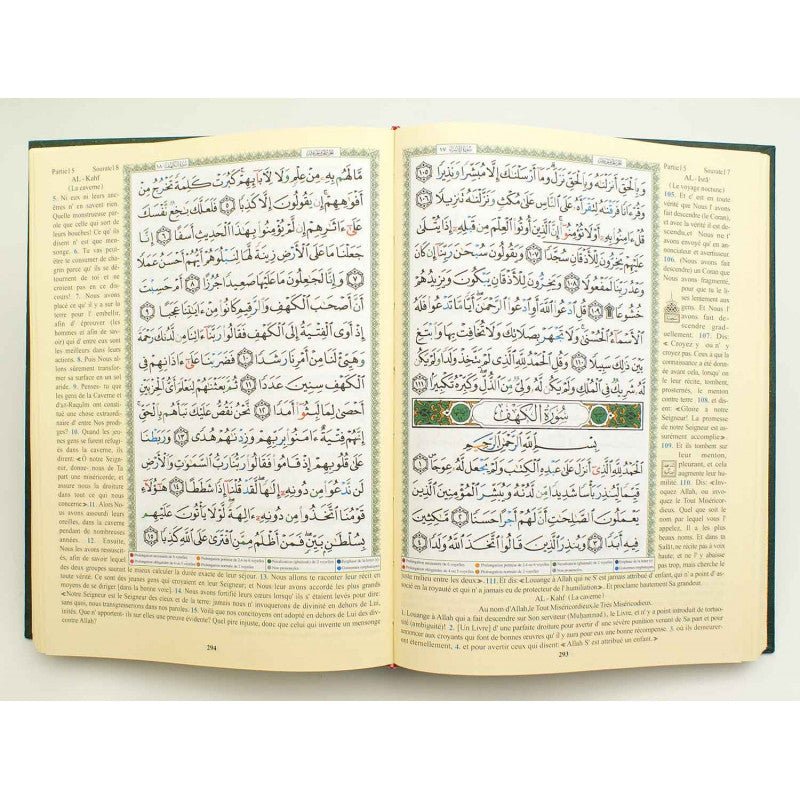 سُورَةُ الإِسْرَاءِ ١٧
وَبِالْحَقِّ أَنزَلْنَٰهُ وَبِالْحَقِّ نَزَلَ وَمَا أَرْسَلْنَٰكَ إِلَّا مُبَشِّرًا وَنَذِيرًا ١٠٥
وَقُرْءَانًا فَرَقْنَٰهُ لِتَقْرَأَهُ عَلَى النَّاسِ عَلَىٰ مُكْثٍ وَنَزَّلْنَٰهُ تَنزِيلًا ١٠٦
قُلْ ءَامِنُوا بِهِۦ أَوْ لَا تُؤْمِنُوا إِنَّ الَّذِينَ أُوتُوا الْعِلْمَ مِن قَبْلِهِۦ إِذَا يُتْلَىٰ
عَلَيْهِمْ يَخِرُّونَ لِلْأَذْقَانِ سُجَّدًا ١٠٧ وَيَقُولُونَ سُبْحَٰنَ رَبِّنَا إِن كَانَ
وَعْدُ رَبِّنَا لَمَفْعُولًا ١٠٨ وَيَخِرُّونَ لِلْأَذْقَانِ يَبْكُونَ وَيَزِيدُهُمْ
خُشُوعًا ۩ ١٠٩ قُلِ ادْعُوا اللَّهَ أَوِ ادْعُوا الرَّحْمَٰنَ أَيًّا مَّا تَدْعُوا فَلَهُ
الْأَسْمَاءُ الْحُسْنَىٰ وَلَا تَجْهَرْ بِصَلَاتِكَ وَلَا تُخَافِتْ بِهَا وَابْتَغِ
بَيْنَ ذَٰلِكَ سَبِيلًا ١١٠ وَقُلِ الْحَمْدُ لِلَّهِ الَّذِي لَمْ يَتَّخِذْ وَلَدًا وَلَمْ يَكُن
لَّهُۥ شَرِيكٌ فِي الْمُلْكِ وَلَمْ يَكُن لَّهُۥ وَلِيٌّ مِّنَ الذُّلِّ وَكَبِّرْهُ تَكْبِيرًا ١١١
سُورَةُ الكَهْفِ
بِسْمِ اللَّهِ الرَّحْمَٰنِ الرَّحِيمِ
الْحَمْدُ لِلَّهِ الَّذِي أَنزَلَ عَلَىٰ عَبْدِهِ الْكِتَٰبَ وَلَمْ يَجْعَل لَّهُۥ عِوَجًا ١
قَيِّمًا لِّيُنذِرَ بَأْسًا شَدِيدًا مِّن لَّدُنْهُ وَيُبَشِّرَ الْمُؤْمِنِينَ الَّذِينَ
يَعْمَلُونَ الصَّٰلِحَٰتِ أَنَّ لَهُمْ أَجْرًا حَسَنًا ٢ مَّٰكِثِينَ
فِيهِ أَبَدًا ٣ وَيُنذِرَ الَّذِينَ قَالُوا اتَّخَذَ اللَّهُ وَلَدًا ٤
Partie15 Sourate17
AL-Isrâ'
(Le voyage nocturne)
105. Et c'est en toute
vérité que Nous l'
avons fait descendre
(le Coran),
et avec la vérité
il est descendu,
et Nous ne t'avons
envoyé qu'en an-
nonciateur et avertisseur.
106. (Nous avons fait
descendre) un Coran que
Nous avons fragmenté,
pour que tu le li-
ses lentement aux
gens. Et Nous l'
avons fait des-
cendre grad-
uellement. 107. Dis:
«Croyez y ou n'y
croyez pas. Ceux à qui la
connaissance a été donnée
avant cela, lorsqu'on le
leur récite, tombent,
prosternés, le menton
contre terre 108. et di-
sent: «Gloire à notre
Seigneur! La promesse
de notre Seigneur est as-
surément accomplie».
109. Et ils tombent
sur leur menton,
pleurant, et cela
augmente leur
humilité.
110. Dis: «In-
voquez Allah, ou in-
voquez le Tout Misé-
ricordieux. Quel que
soit le nom par
lequel vous l'
appelez, Il a les
plus beaux
noms. Et dans ta
Salât, ne récite
pas à voix haute;
et ne l'y abaisse
pas trop, mais cherche le
juste milieu entre les deux». 111. Et dis: «Louange à Allah qui ne S'est jamais attribué d'enfant, qui n'a point d'as-
socié en la royauté et qui n'a jamais eu de protecteur de l'humiliation». Et proclame hautement Sa grandeur.
AL- Kahf (La caverne)
Au nom d'Allah, le Tout Miséricordieux, le Très Miséricordieux.
1. Louange à Allah qui a fait descendre sur Son serviteur (Muhammad), le Livre, et n'y a point introduit de tortuo-
sité (ambiguïté)! 2. [Un Livre] d'une parfaite droiture pour avertir d'une sévère punition venant de Sa part et pour
annoncer aux croyants qui font de bonnes œuvres qu'il y aura pour eux une bonne récompense. 3. où ils demeurer-
ont éternellement, 4. et pour avertir ceux qui disent: «Allah S'est attribué un enfant.»
293
سُورَةُ الكَهْفِ ١٨
مَّا لَهُم بِهِۦ مِنْ عِلْمٍ وَلَا لِءَابَائِهِمْ كَبُرَتْ كَلِمَةً تَخْرُجُ مِنْ
أَفْوَٰهِهِمْ إِن يَقُولُونَ إِلَّا كَذِبًا ٥ فَلَعَلَّكَ بَٰخِعٌ نَّفْسَكَ
عَلَىٰ ءَاثَٰرِهِمْ إِن لَّمْ يُؤْمِنُوا بِهَٰذَا الْحَدِيثِ أَسَفًا ٦ إِنَّا
جَعَلْنَا مَا عَلَى الْأَرْضِ زِينَةً لَّهَا لِنَبْلُوَهُمْ أَيُّهُمْ أَحْسَنُ عَمَلًا
٧ وَإِنَّا لَجَٰعِلُونَ مَا عَلَيْهَا صَعِيدًا جُرُزًا ٨ أَمْ حَسِبْتَ
أَنَّ أَصْحَٰبَ الْكَهْفِ وَالرَّقِيمِ كَانُوا مِنْ ءَايَٰتِنَا عَجَبًا ٩
إِذْ أَوَى الْفِتْيَةُ إِلَى الْكَهْفِ فَقَالُوا رَبَّنَا ءَاتِنَا مِن لَّدُنكَ رَحْمَةً
وَهَيِّئْ لَنَا مِنْ أَمْرِنَا رَشَدًا ١٠ فَضَرَبْنَا عَلَىٰ ءَاذَانِهِمْ فِي
الْكَهْفِ سِنِينَ عَدَدًا ١١ ثُمَّ بَعَثْنَٰهُمْ لِنَعْلَمَ أَيُّ الْحِزْبَيْنِ
أَحْصَىٰ لِمَا لَبِثُوا أَمَدًا ١٢ نَّحْنُ نَقُصُّ عَلَيْكَ نَبَأَهُم بِالْحَقِّ
إِنَّهُمْ فِتْيَةٌ ءَامَنُوا بِرَبِّهِمْ وَزِدْنَٰهُمْ هُدًى ١٣ وَرَبَطْنَا
عَلَىٰ قُلُوبِهِمْ إِذْ قَامُوا فَقَالُوا رَبُّنَا رَبُّ السَّمَٰوَٰتِ وَالْأَرْضِ
لَن نَّدْعُوَا مِن دُونِهِۦ إِلَٰهًا لَّقَدْ قُلْنَا إِذًا شَطَطًا ١٤ هَٰؤُلَاءِ
قَوْمُنَا اتَّخَذُوا مِن دُونِهِۦ ءَالِهَةً لَّوْلَا يَأْتُونَ عَلَيْهِم
بِسُلْطَٰنٍ بَيِّنٍ فَمَنْ أَظْلَمُ مِمَّنِ افْتَرَىٰ عَلَى اللَّهِ كَذِبًا ١٥
Partie15 Sourate18
AL - Kahf
(La caverne)
5. Ni eux ni leurs anc-
êtres n'en savent rien.
Quelle monstrueuse pa-
role que celle qui sort de
leurs bouches! Ce qu'ils
disent n'est que men-
songe. 6. Tu vas peut-
être te consumer de cha-
grin parce qu'ils se dé-
tournent de toi et ne
croient pas en ce dis-
cours! 7. Nous avons
placé ce qu'il y a sur
la terre pour l'embellir,
afin d'éprouver (les
hommes afin de savoir)
qui d'entre eux sont
les meilleurs dans leurs
actions. 8. Puis Nous al-
lons sûrement transfor-
mer sa surface en un sol
aride. 9. Penses-tu que
les gens de la Caverne et
d'ar-Raquîm ont consti-
tué une chose extraordi-
naire d'entre Nos prod-
iges? 10. Quand les jeu-
nes gens se furent réfu-
giés dans la caverne, ils
dirent: «Ô notre Seig-
neur, donne-nous de Ta
part une miséricorde,
et assure nous la droiture
dans tout ce qui nous
concerne». 11. Alors Nous
avons assourdi leurs
oreilles, dans la caverne
pendant de nombreuses
années. 12. Ensuite, Nous
les avons ressusci-
tés, afin de savoir lequel
des deux groupes saurait le mieux calculer la durée exacte de leur séjour. 13. Nous allons te raconter leur récit en
toute vérité. Ce sont des jeunes gens qui croyaient en leur Seigneur; et Nous leur avons accordé les plus grands
moyens de se diriger [dans la bonne voie]. 14. Nous avons fortifié leurs cœurs lorsqu'ils s'étaient levés pour dire:
«Notre Seigneur est le Seigneur des cieux et de la terre: jamais nous n'invoquerons de divinité en dehors de Lui,
sans quoi, nous transgresserions dans nos paroles. 15. Voilà que nos concitoyens ont adopté en dehors de Lui des divini-
tés. Que n'apportent-ils sur elles une preuve évidente? Quel pire injuste, donc que celui qui invente un mensonge
contre Allah?
294